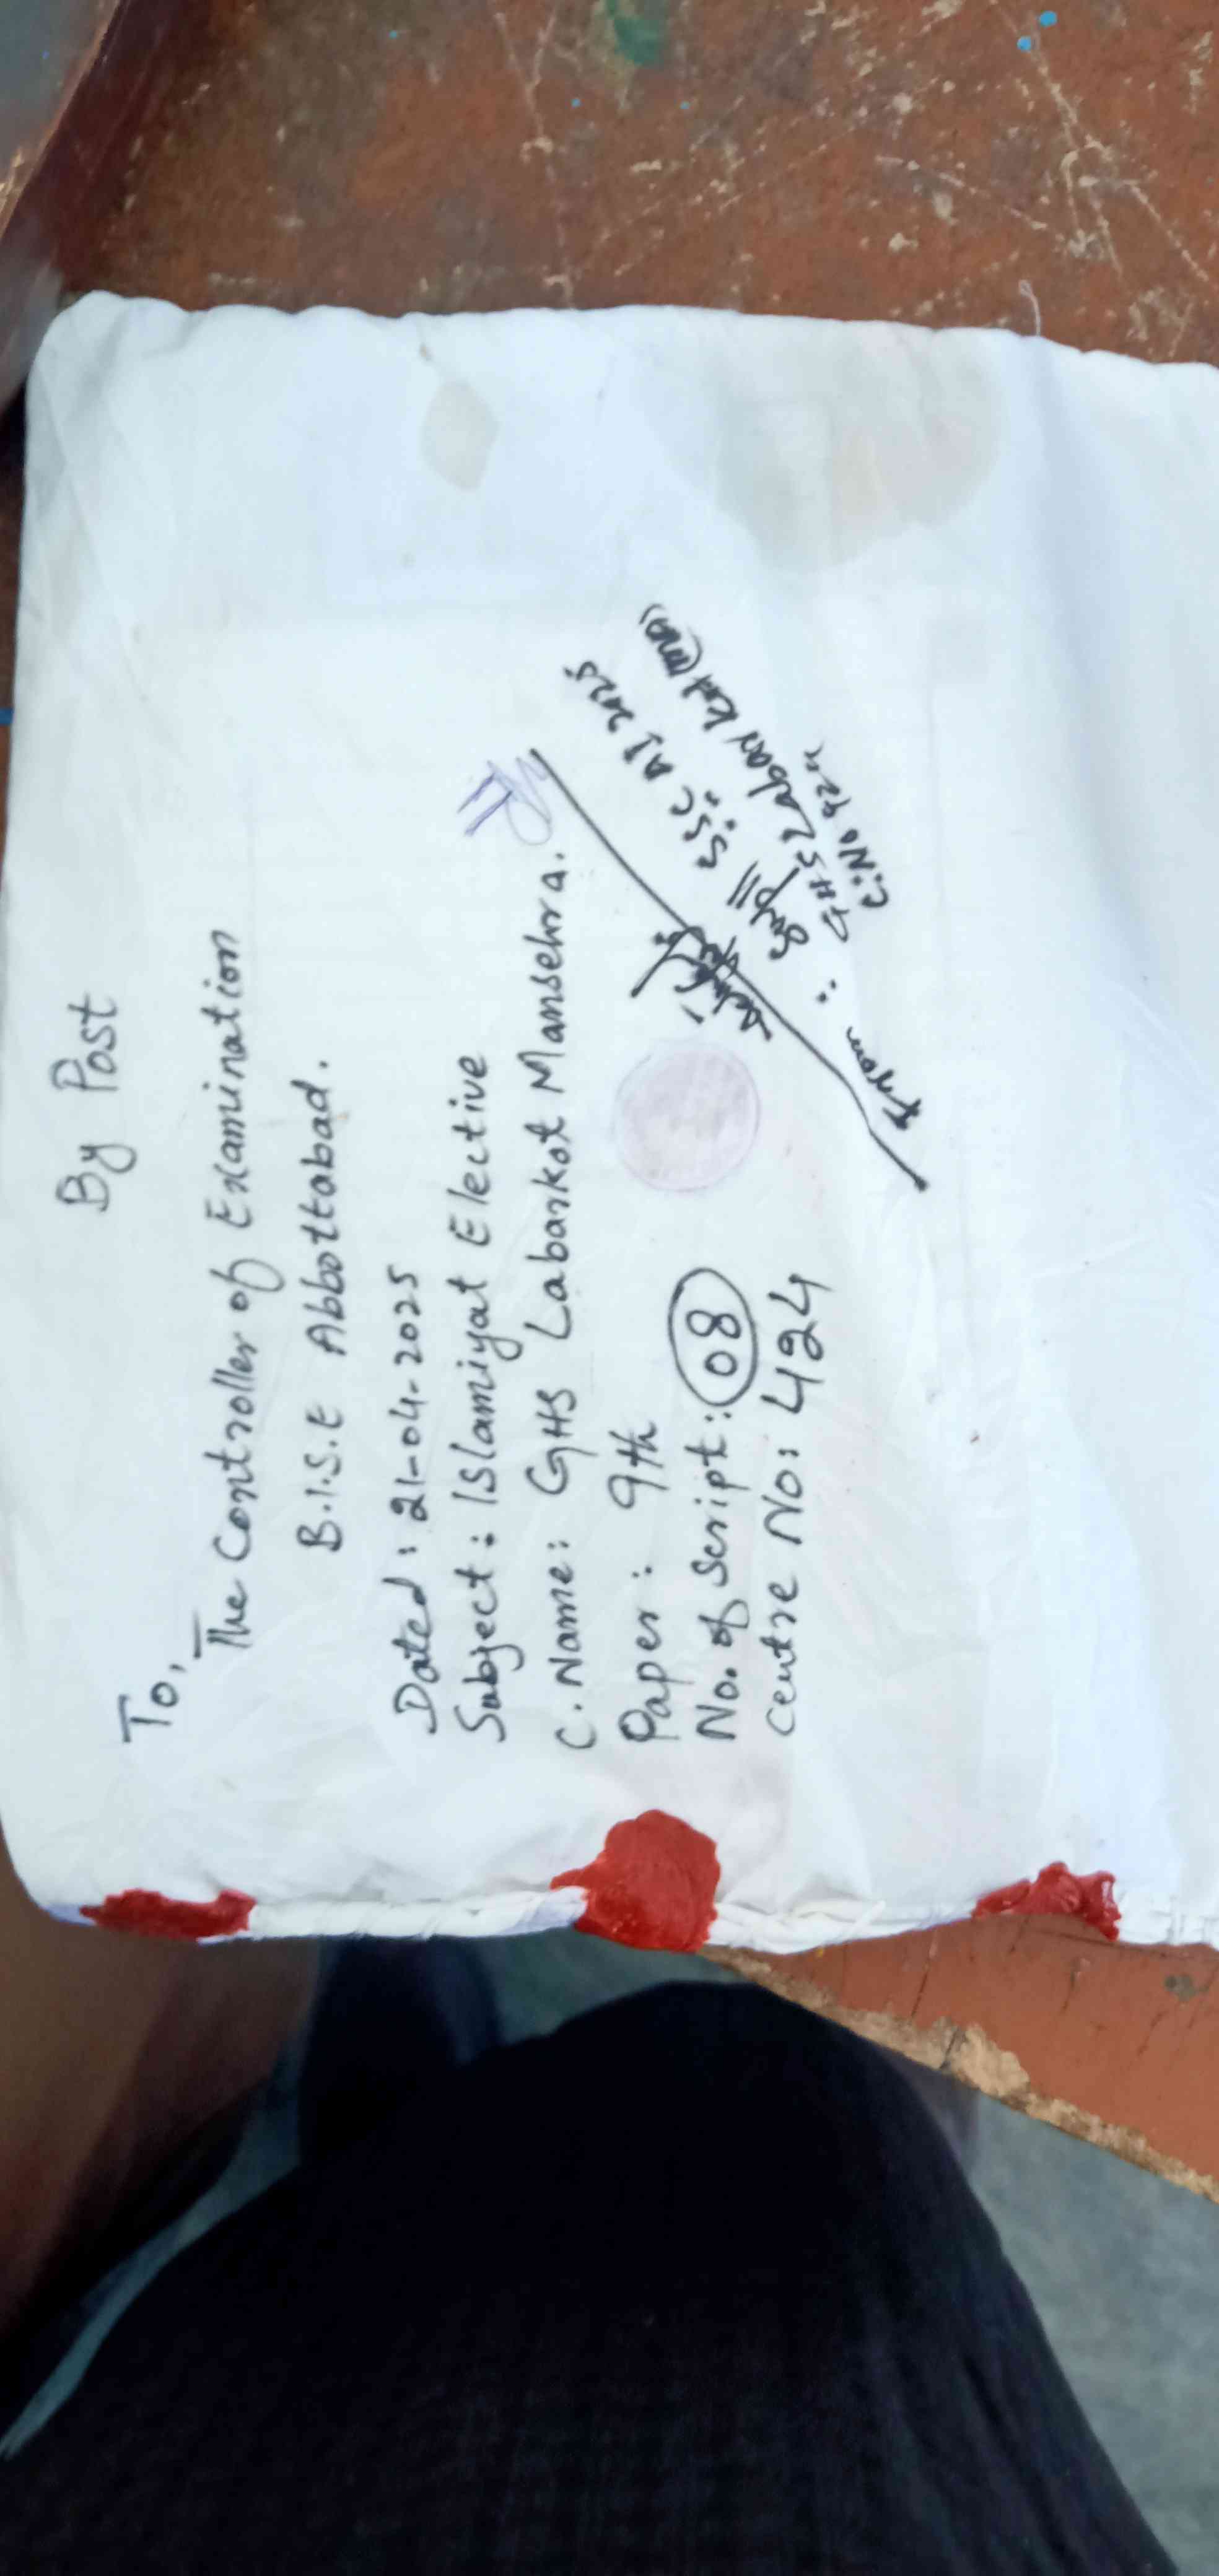 By Post
To,
The Controller of Examination
B.I.S.E Abbottabad.
Dated: 21-04-2025
Subject: Islamiyat Elective
C. Name: GHS Labarkot Mansehra.
Paper: 9th
No. of Script: 08
Centre No: 424
From:
Supdtt SSC AI 2025
GHS Labar kot
C.No